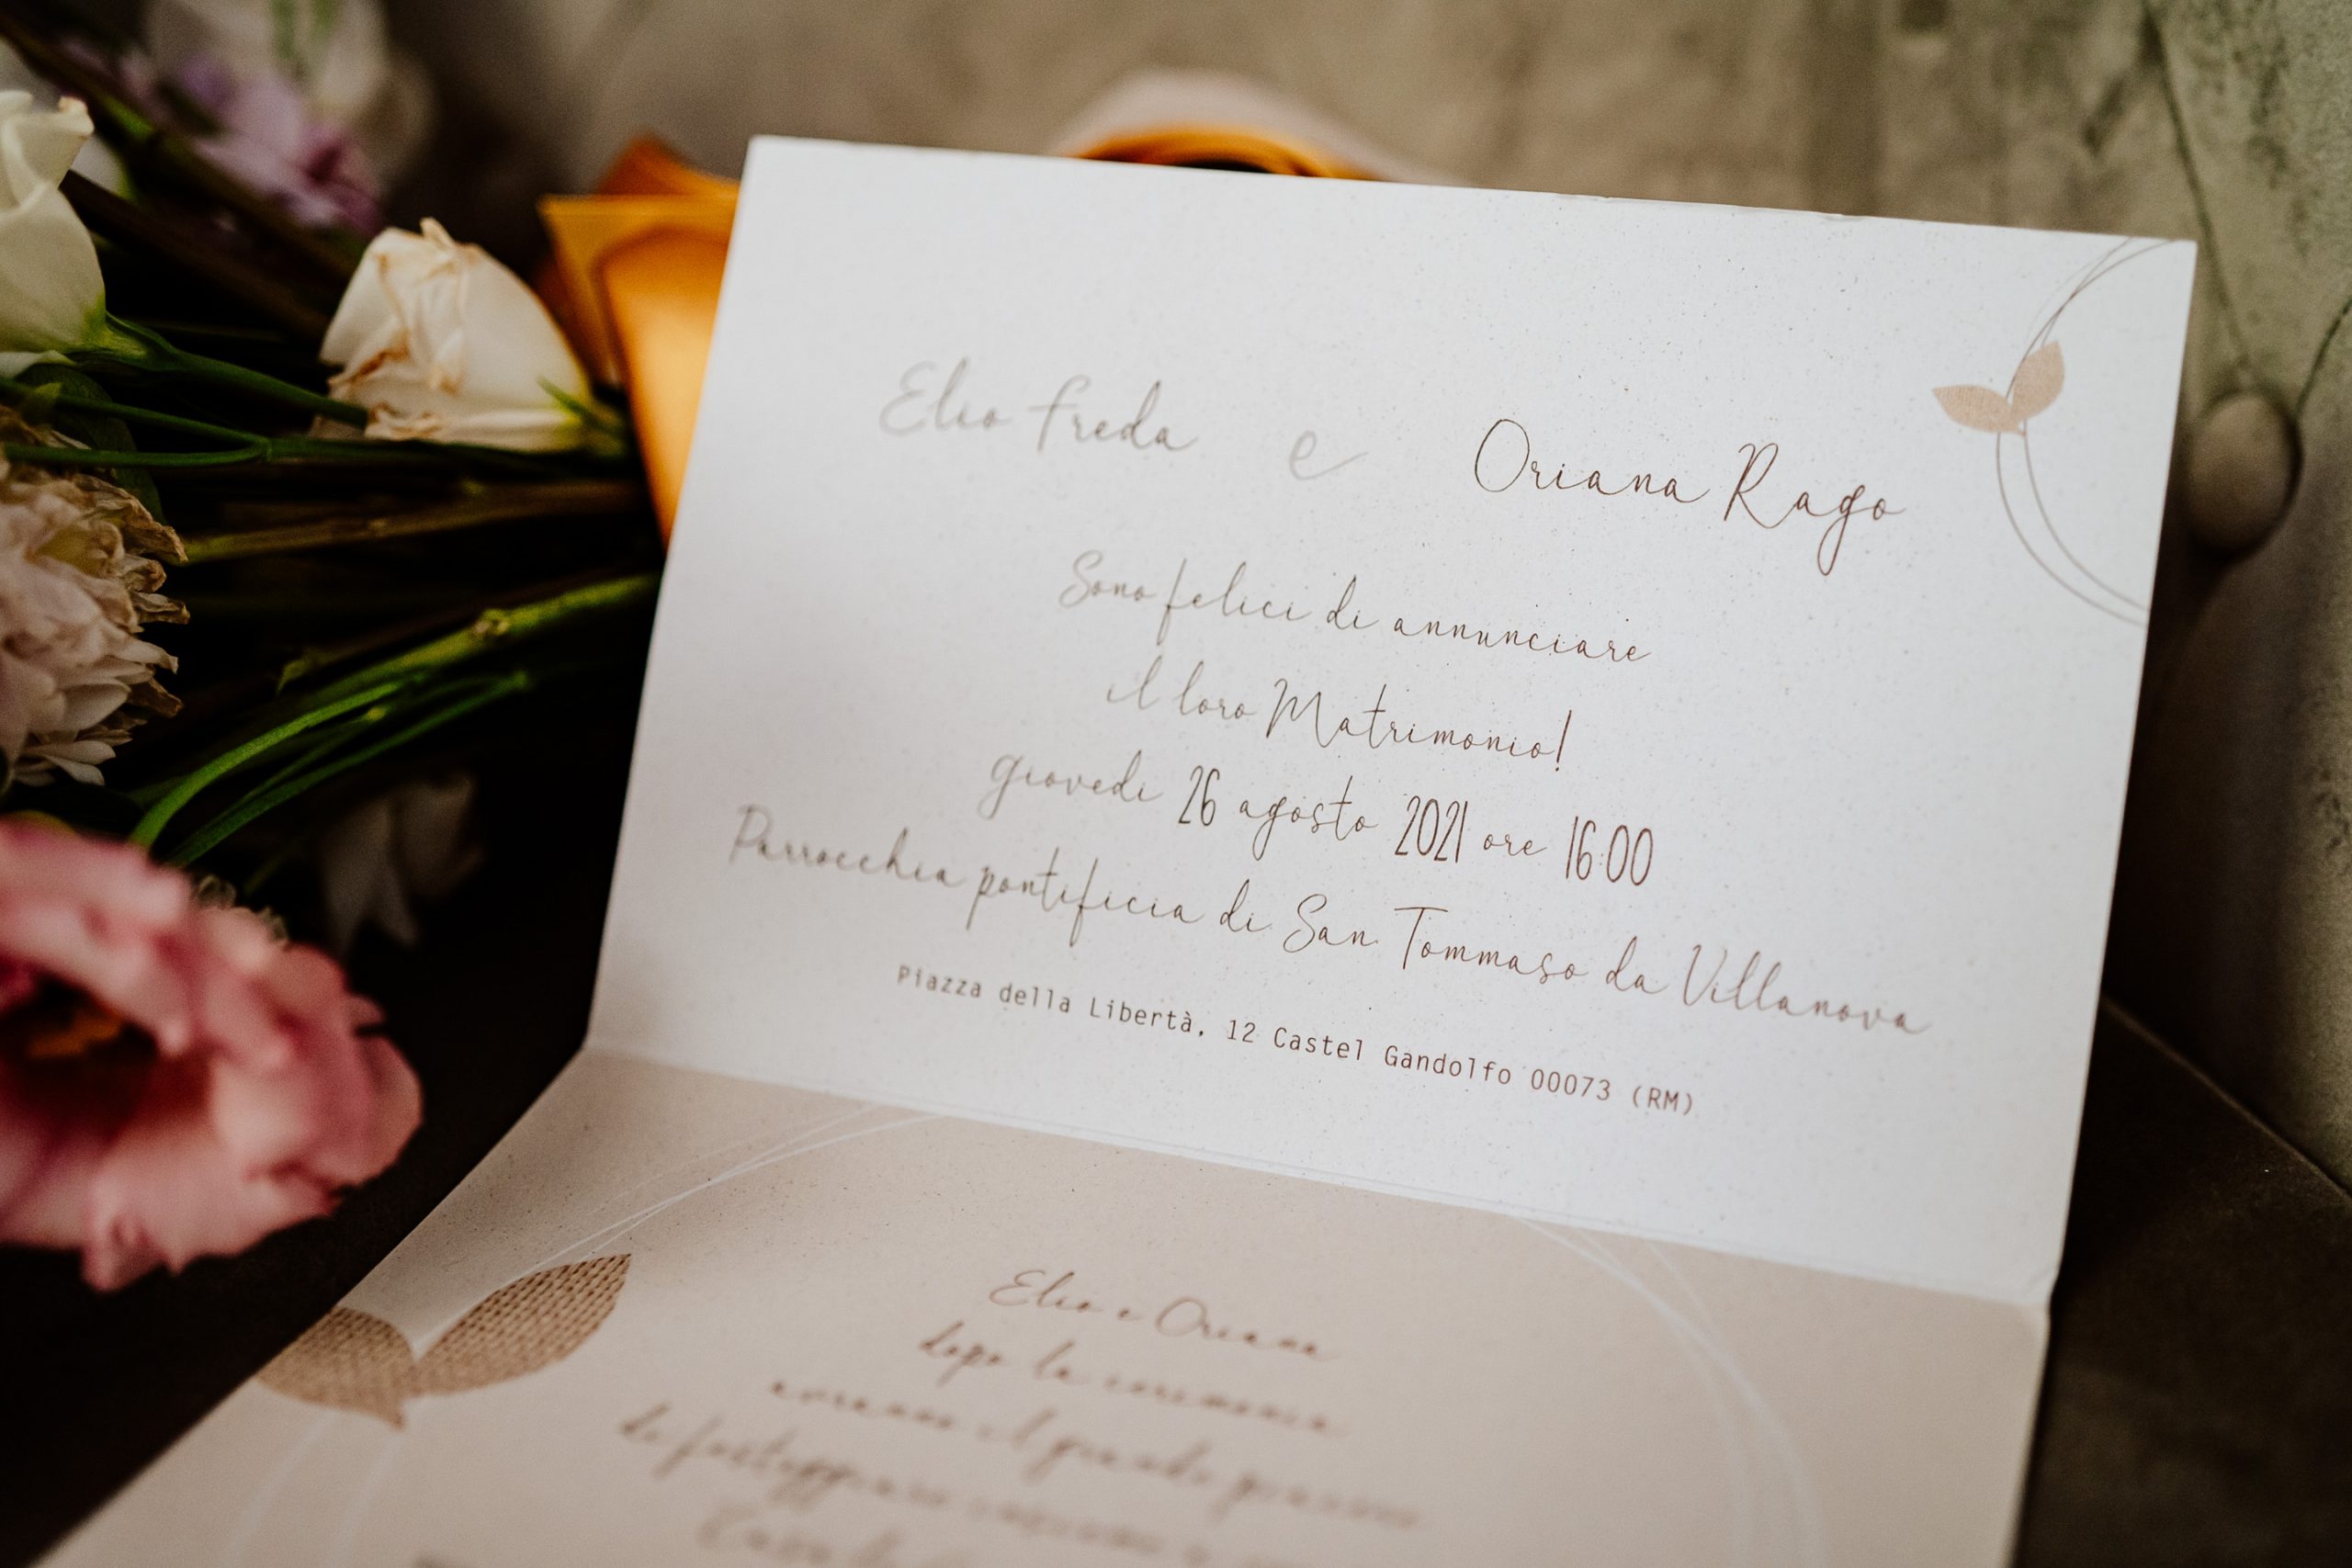 Elio Freda e Oriana Rago
Sono felici di annunciare
il loro Matrimonio!
giovedi 26 agosto 2021 ore 16:00
Parrocchia pontificia di San Tommaso da Villanova
Piazza della Libertà, 12 Castel Gandolfo 00073 (RM)
Elio e Oriana
dopo la cerimonia
avranno il grande piacere
di festeggiare